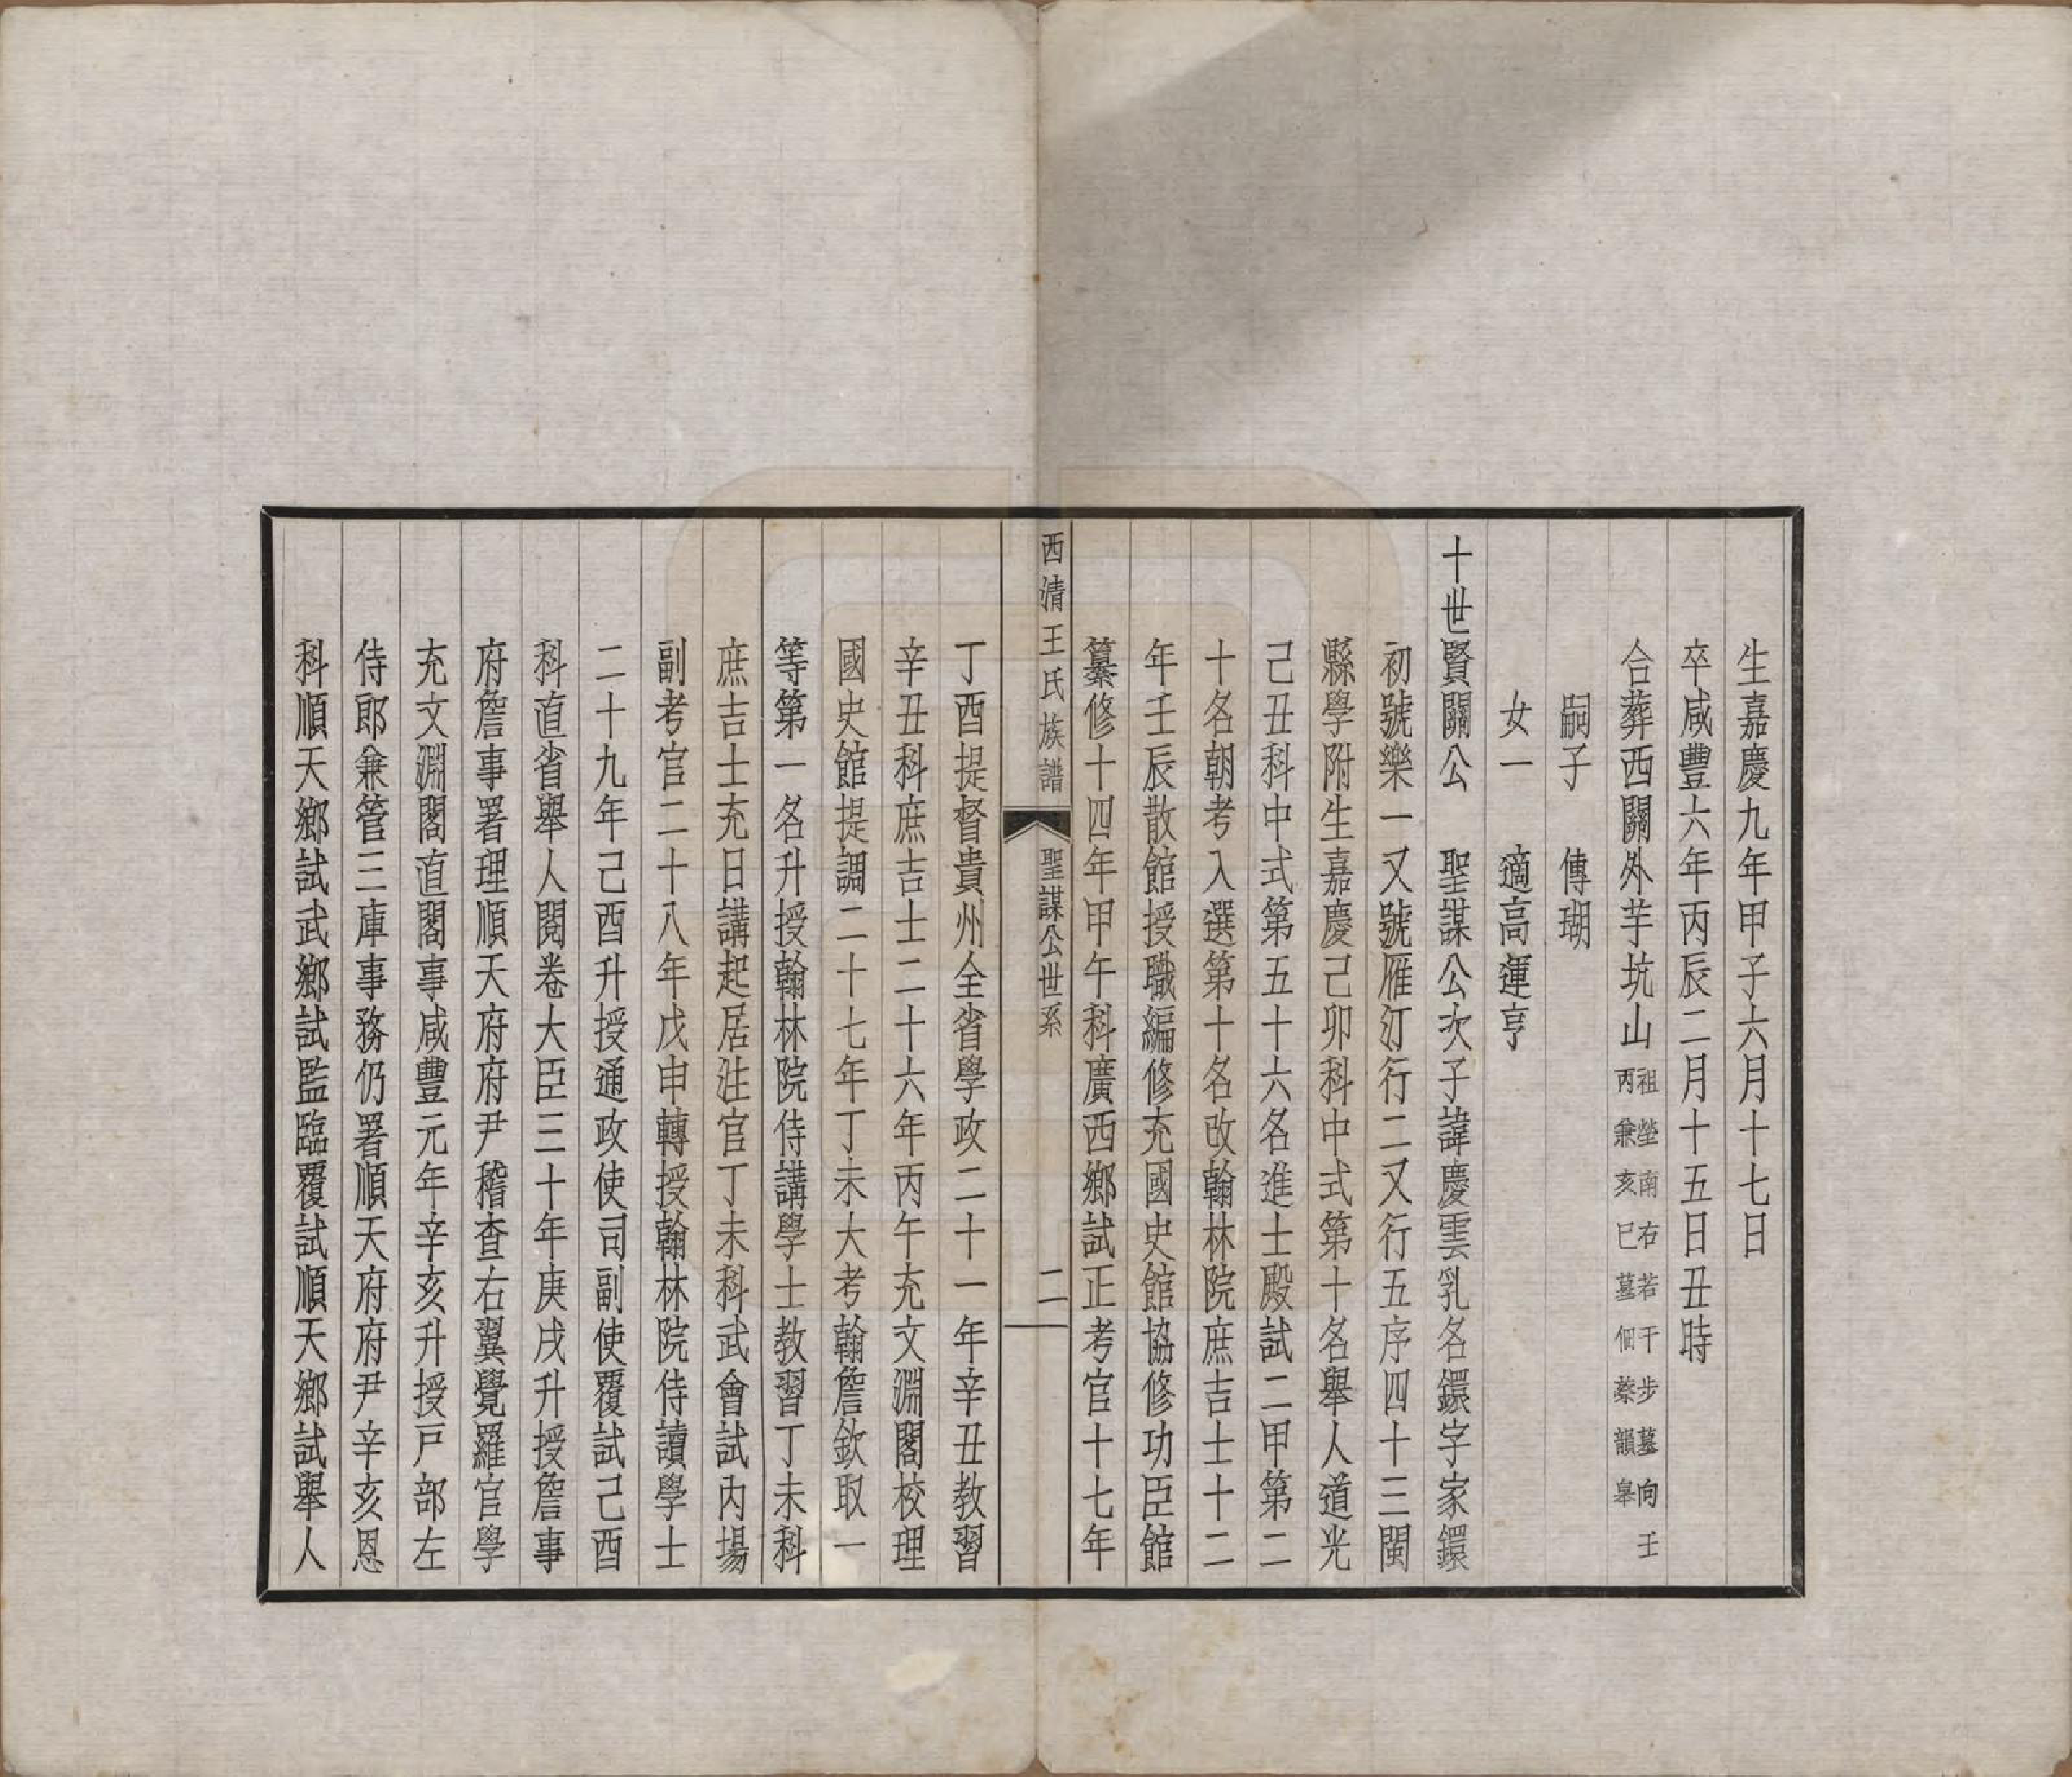 生嘉慶九年甲子六月十七日
卒咸豐六年丙辰二月十五日丑時
合葬西關外芋坑山祖塋南右若干步墓向壬
丙兼亥巳墓佃蔡韻皋
嗣子　傳瑚
女一　適高運亨
十世賢關公　聖謀公次子諱慶雲乳名鐶字家鐶
初號樂一又號雁汀行二又行五序四十三閩
縣學附生嘉慶己卯科中式第十名舉人道光
己丑科中式第五十六名進士殿試二甲第二
十名朝考入選第十名改翰林院庶吉士十二
年壬辰散館授職編修充國史館協修功臣館
纂修十四年甲午科廣西鄉試正考官十七年
西清王氏族譜　聖謀公世系　二
丁酉提督貴州全省學政二十一年辛丑教習
辛丑科庶吉士二十六年丙午充文淵閣校理
國史館提調二十七年丁未大考翰詹欽取一
等第一名升授翰林院侍講學士教習丁未科
庶吉士充日講起居注官丁未科武會試內場
副考官二十八年戊申轉授翰林院侍讀學士
二十九年己酉升授通政使司副使覆試己酉
科直省舉人閱卷大臣三十年庚戌升授詹事
府詹事署理順天府府尹稽查右翼覺羅官學
充文淵閣直閣事咸豐元年辛亥升授戶部左
侍郎兼管三庫事務仍署順天府府尹辛亥恩
科順天鄉試武鄉試監臨覆試順天鄉試舉人